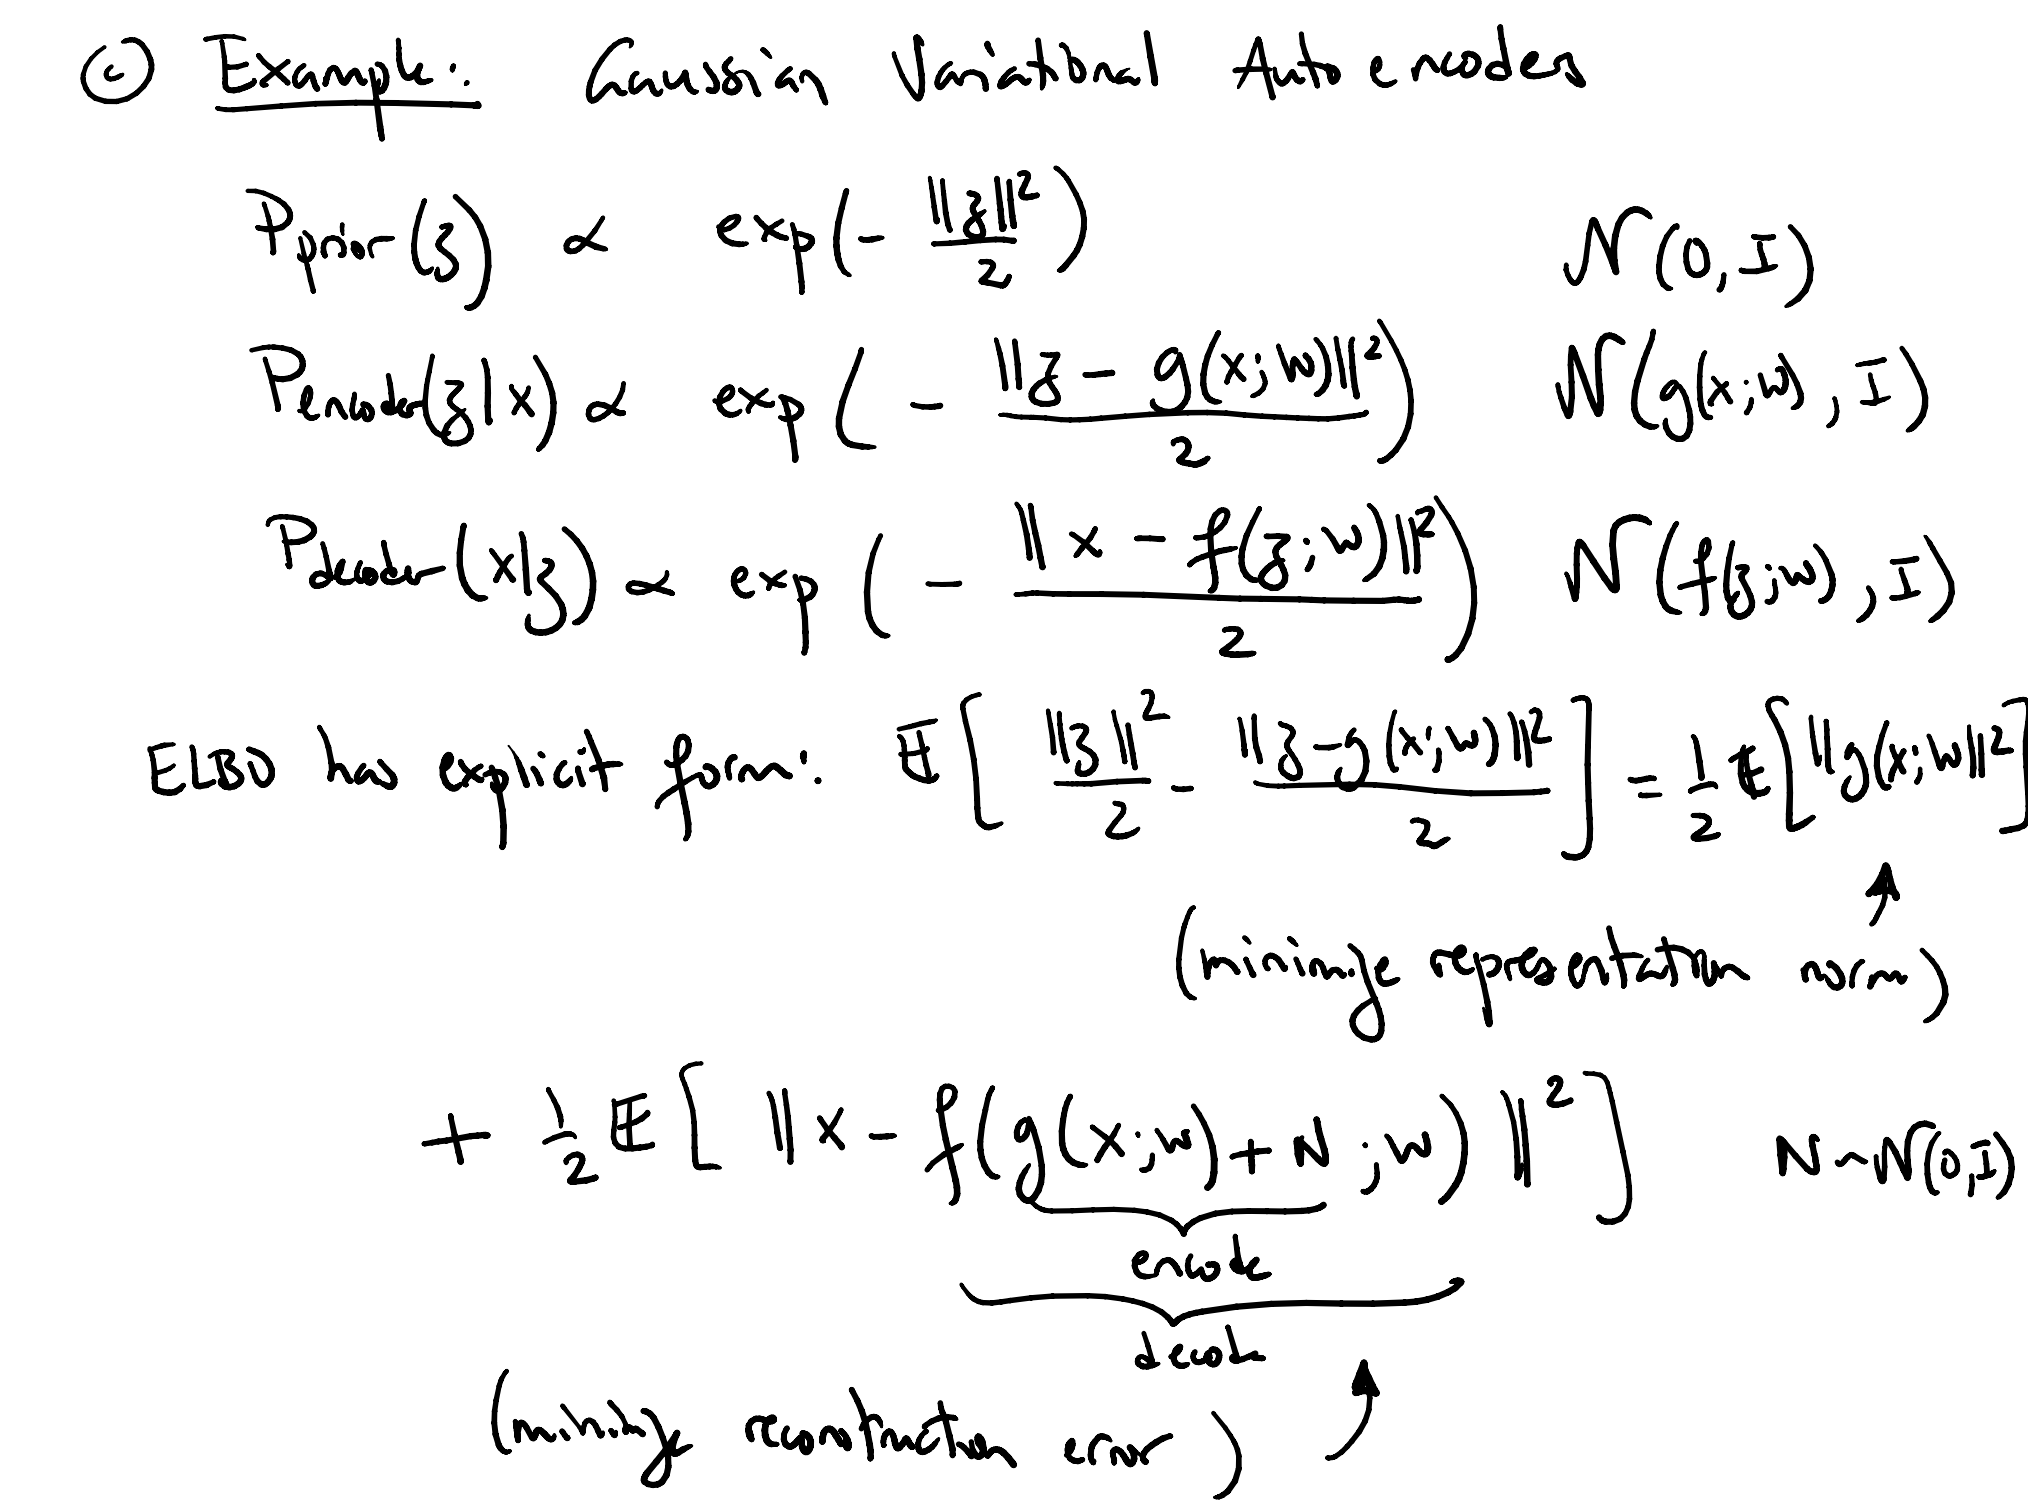 ⓒ Example: Gaussian Variational Autoencoders
P_prior(z) ∝ exp(- ‖z‖²/2) 𝒩(0, I)
P_encoder(z|x) ∝ exp(- ‖z - g(x;w)‖²/2) 𝒩(g(x;w), I)
P_decoder(x|z) ∝ exp(- ‖x - f(z;w)‖²/2) 𝒩(f(z;w), I)
ELBO has explicit form: 𝔼[‖z‖²/2 - ‖z-g(x;w)‖²/2] = 1/2 𝔼[‖g(x;w‖²]
(minimize representation norm)
+ 1/2 𝔼[‖x - f(g(x;w)+N ;w)‖²] N~𝒩(0,I)
encode
decode
(minimize reconstruction error)